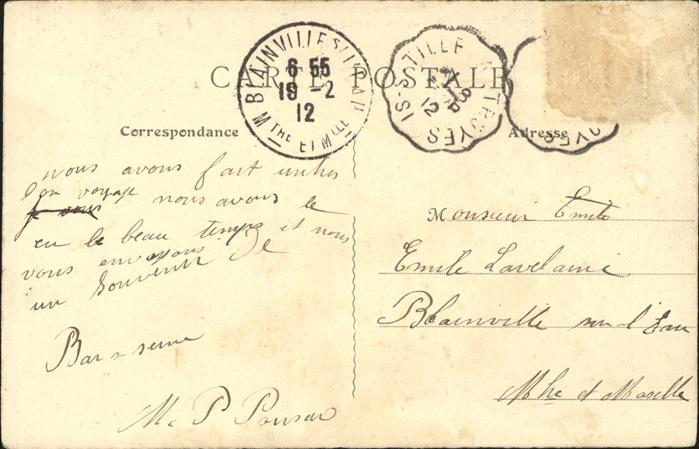 CARTE POSTALE
BLAINVILLE S/ L'EAU
6 55
19 -2
12
Mthe ET Mlle
IS-S-TILLE A TROYES
12
Correspondance
Adresse
nous avons fait un
bon voyage
nous avons le
eu le beau temps et nous
vous envoyons
un souvenir de
Bar s seine
M P
Monsieur Emile
Emile
Blainville sur l'Eau
Mhe et Moselle